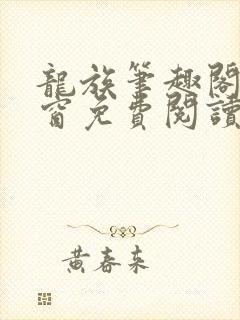 龍族筆趣閣
窗免費閱讀
黃春來